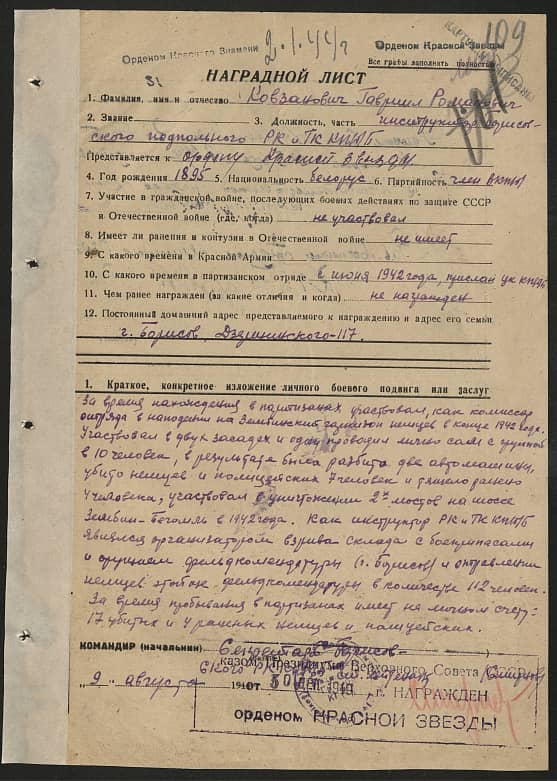 Орденом Красного Знамени
2.I.44г
Орденом Красной Звезды
109
Все графы заполнять полностью
51
НАГРАДНОЙ ЛИСТ
1. Фамилия, имя и отчество Ковзанович Гавриил Романович
2. Звание 3. Должность, часть инструктор Борисов-
ского подпольного РК и ГК КП/б/Б
Представляется к ордену Красной Звезды
4. Год рождения 1895 5. Национальность белорус 6. Партийность член ВКП/б/
7. Участие в гражданской войне, последующих боевых действиях по защите СССР
и Отечественной войне (где, когда) не участвовал
8. Имеет ли ранения и контузии в Отечественной войне не имеет
9. С какого времени в Красной Армии
10. С какого времени в партизанском отряде с июня 1942 года, прислан ЦК КП/б/Б
11. Чем ранее награжден (за какие отличия и когда) не награжден
12. Постоянный домашний адрес представляемого к награждению и адрес его семьи
г. Борисов, Дзержинского-117.
1. Краткое, конкретное изложение личного боевого подвига или заслуг
За время нахождения в партизанах участвовал, как комиссар
отряда в нападении на Зембинский гарнизон немцев в конце 1942 года.
Участвовал в двух засадах и одну проводил лично сам с группой
в 10 человек, в результате была разбита две автомашины,
убито немцев и полицейских 7 человек и тяжело ранено
4 человека, участвовал в уничтожении 2х мостов на шоссе
Зембин-Бегомль в 1942 года. Как инструктор РК и ГК КП/б/Б
явился организатором взрыва склада с боеприпасами
и фельдкомендатуры (г. Борисов) и отравлении
немцев этой же фельдкомендатуры в количестве 112 человек.
За время пребывания в партизанах имеет на личном счету-
17 убитых и 4 раненых немцев и полицейских.
КОМАНДИР (начальник) Секретарь Борисов-
ского РК
казом Президиума Верховного Совета СССР
"9" августа 194 от 30 ДЕК 1949 г. НАГРАЖДЕН
орденом КРАСНОЙ ЗВЕЗДЫ